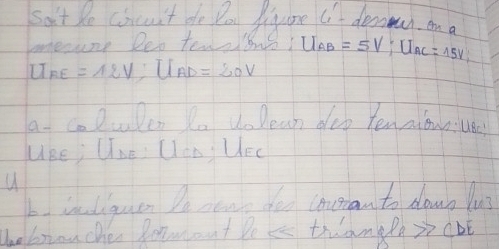 Soit le circuit de la figure ci-dessus. on a
mesure les tensions : UAB = 5V ; UAC = 15V
UBE = 12V ; UAD = 20V
a- calculer la valeur des tensions : UBC
UBE ; UDE ; UCD ; UEC
U
b- indiquer le sens des courants dans les
branches formant le << triangle >> CDE